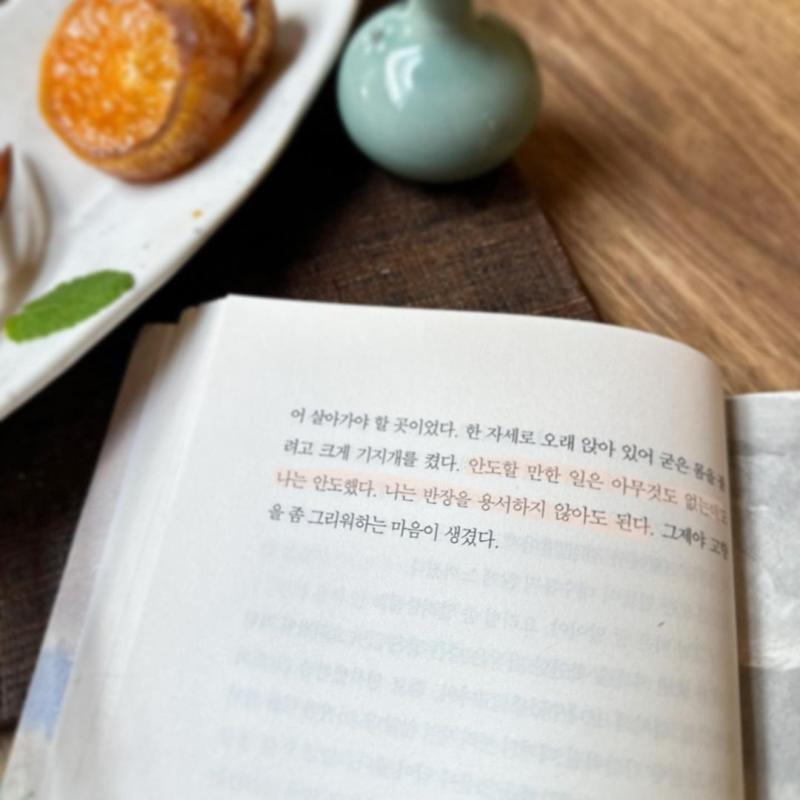 어 살아가야 할 곳이었다. 한 자세로 오래 앉아 있어 굳은 몸을
려고 크게 기지개를 켰다. 안도할 만한 일은 아무것도 없는데도
나는 안도했다. 나는 반장을 용서하지 않아도 된다. 그제야 고향
을 좀 그리워하는 마음이 생겼다.